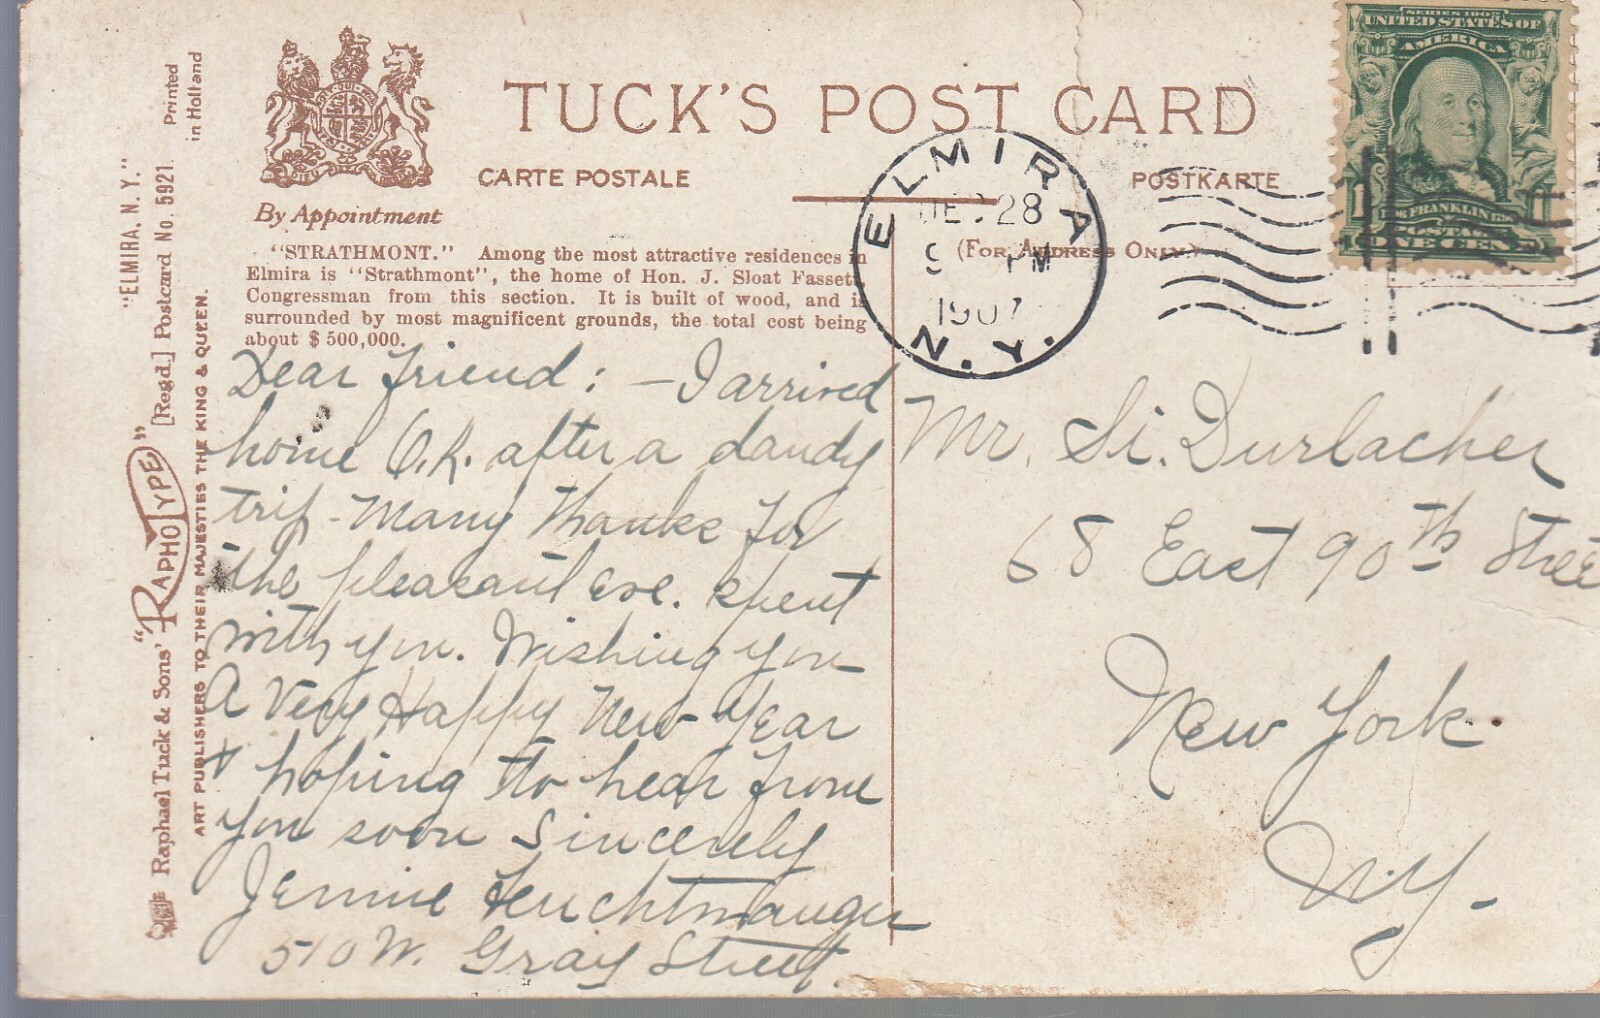 TUCK'S POST CARD
CARTE POSTALE
POSTKARTE
By Appointment
(For Address Only.)
"STRATHMONT." Among the most attractive residences in
Elmira is "Strathmont", the home of Hon. J. Sloat Fassett,
Congressman from this section. It is built of wood, and is
surrounded by most magnificent grounds, the total cost being
about $500,000.
Dear Friend: — I arrived
home O.K. after a dandy
trip - Many thanks for
the pleasant eve. spent
with you. Wishing you
A Very Happy New Year
+ hoping to hear from
you soon Sincerely
Jennie Feuchtwanger
510 W. Gray Street
Mr. Si. Durlacher
68 East 90th Street
New York.
N.Y.
ELMIRA
DEC 28
9 PM
1907
N.Y.
SERIES 1902
UNITED STATES OF
AMERICA
FRANKLIN
POSTAGE
ONE CENT
"ELMIRA, N. Y."
Printed
in Holland
Raphael Tuck & Sons' "RAPHOTYPE" [Regd.] Postcard No. 5921.
ART PUBLISHERS TO THEIR MAJESTIES THE KING & QUEEN.